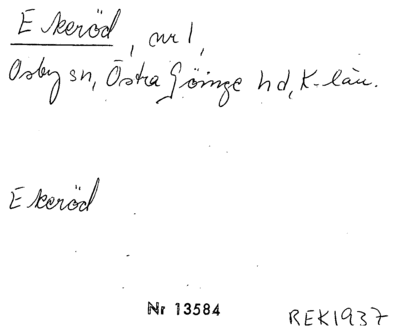 Ekeröd, nr 1,
Osby sn, Östra Göinge hd, K-län.
Ekeröd
Nr 13584
REK1937